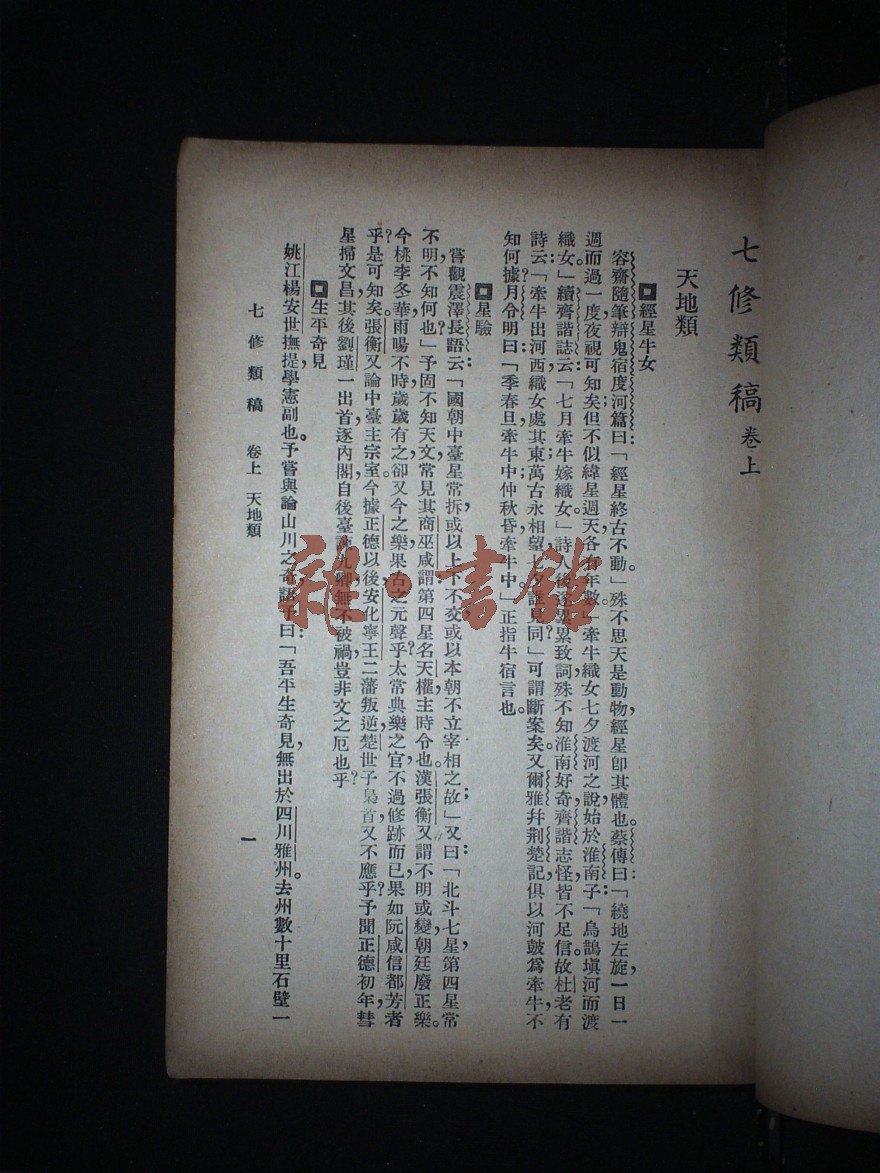 七修類稿 卷上
天地類
經星牛女
容齋隨筆辯鬼宿度河篇曰：「經星終古不動。」殊不思天是動物，經星卽其體也。蔡傳曰：「繞地左旋，一日一
週而過一度，夜視可知矣；但不似緯星週天，各有年數。」牽牛織女七夕渡河之說，始於淮南子「烏鵲塡河而渡
織女。」續齊諧誌云：「七月牽牛嫁織女。」詩人後遂累致詞，殊不知淮南好奇，齊諧志怪，皆不足信。故杜老有
詩云：「牽牛出河西，織女處其東；萬古永相望，七夕誰見同？」可謂斷案矣。又爾雅幷荆楚記俱以河鼓爲牽牛，不
知何據？月令明曰：「季春旦，牽牛中；仲秋昏，牽牛中。」正指牛宿言也。
星驗
嘗觀震澤長語云：「國朝中臺星常拆，或以上下不交，或以本朝不立宰相之故；」又曰：「北斗七星，第四星常
不明，不知何也」予固不知天文，常見其商巫咸謂：第四星名天權，主時令也。漢張衡又謂不明或變，朝廷廢正樂。
今桃李冬華，雨暘不時，歲歲有之，卻又今之樂，果古之元聲乎？太常典樂之官，不過修跡而已，果如阮咸信都芳者
乎？是可知矣。張衡又論中臺主宗室，今據正德以後，安化寧王二藩叛逆，楚世子梟首，又不應乎？予聞正德初年，彗
星掃文昌，其後劉瑾一出首，逐內閣，自後臺諫九卿，無不被禍，豈非文之厄也乎？
生平奇見
姚江楊安世撫，提學憲副也。予嘗與論山川之奇，語予曰：「吾平生奇見，無出於四川雅州。去州數十里，石壁一
七修類稿 卷上 天地類
一
雜·書館